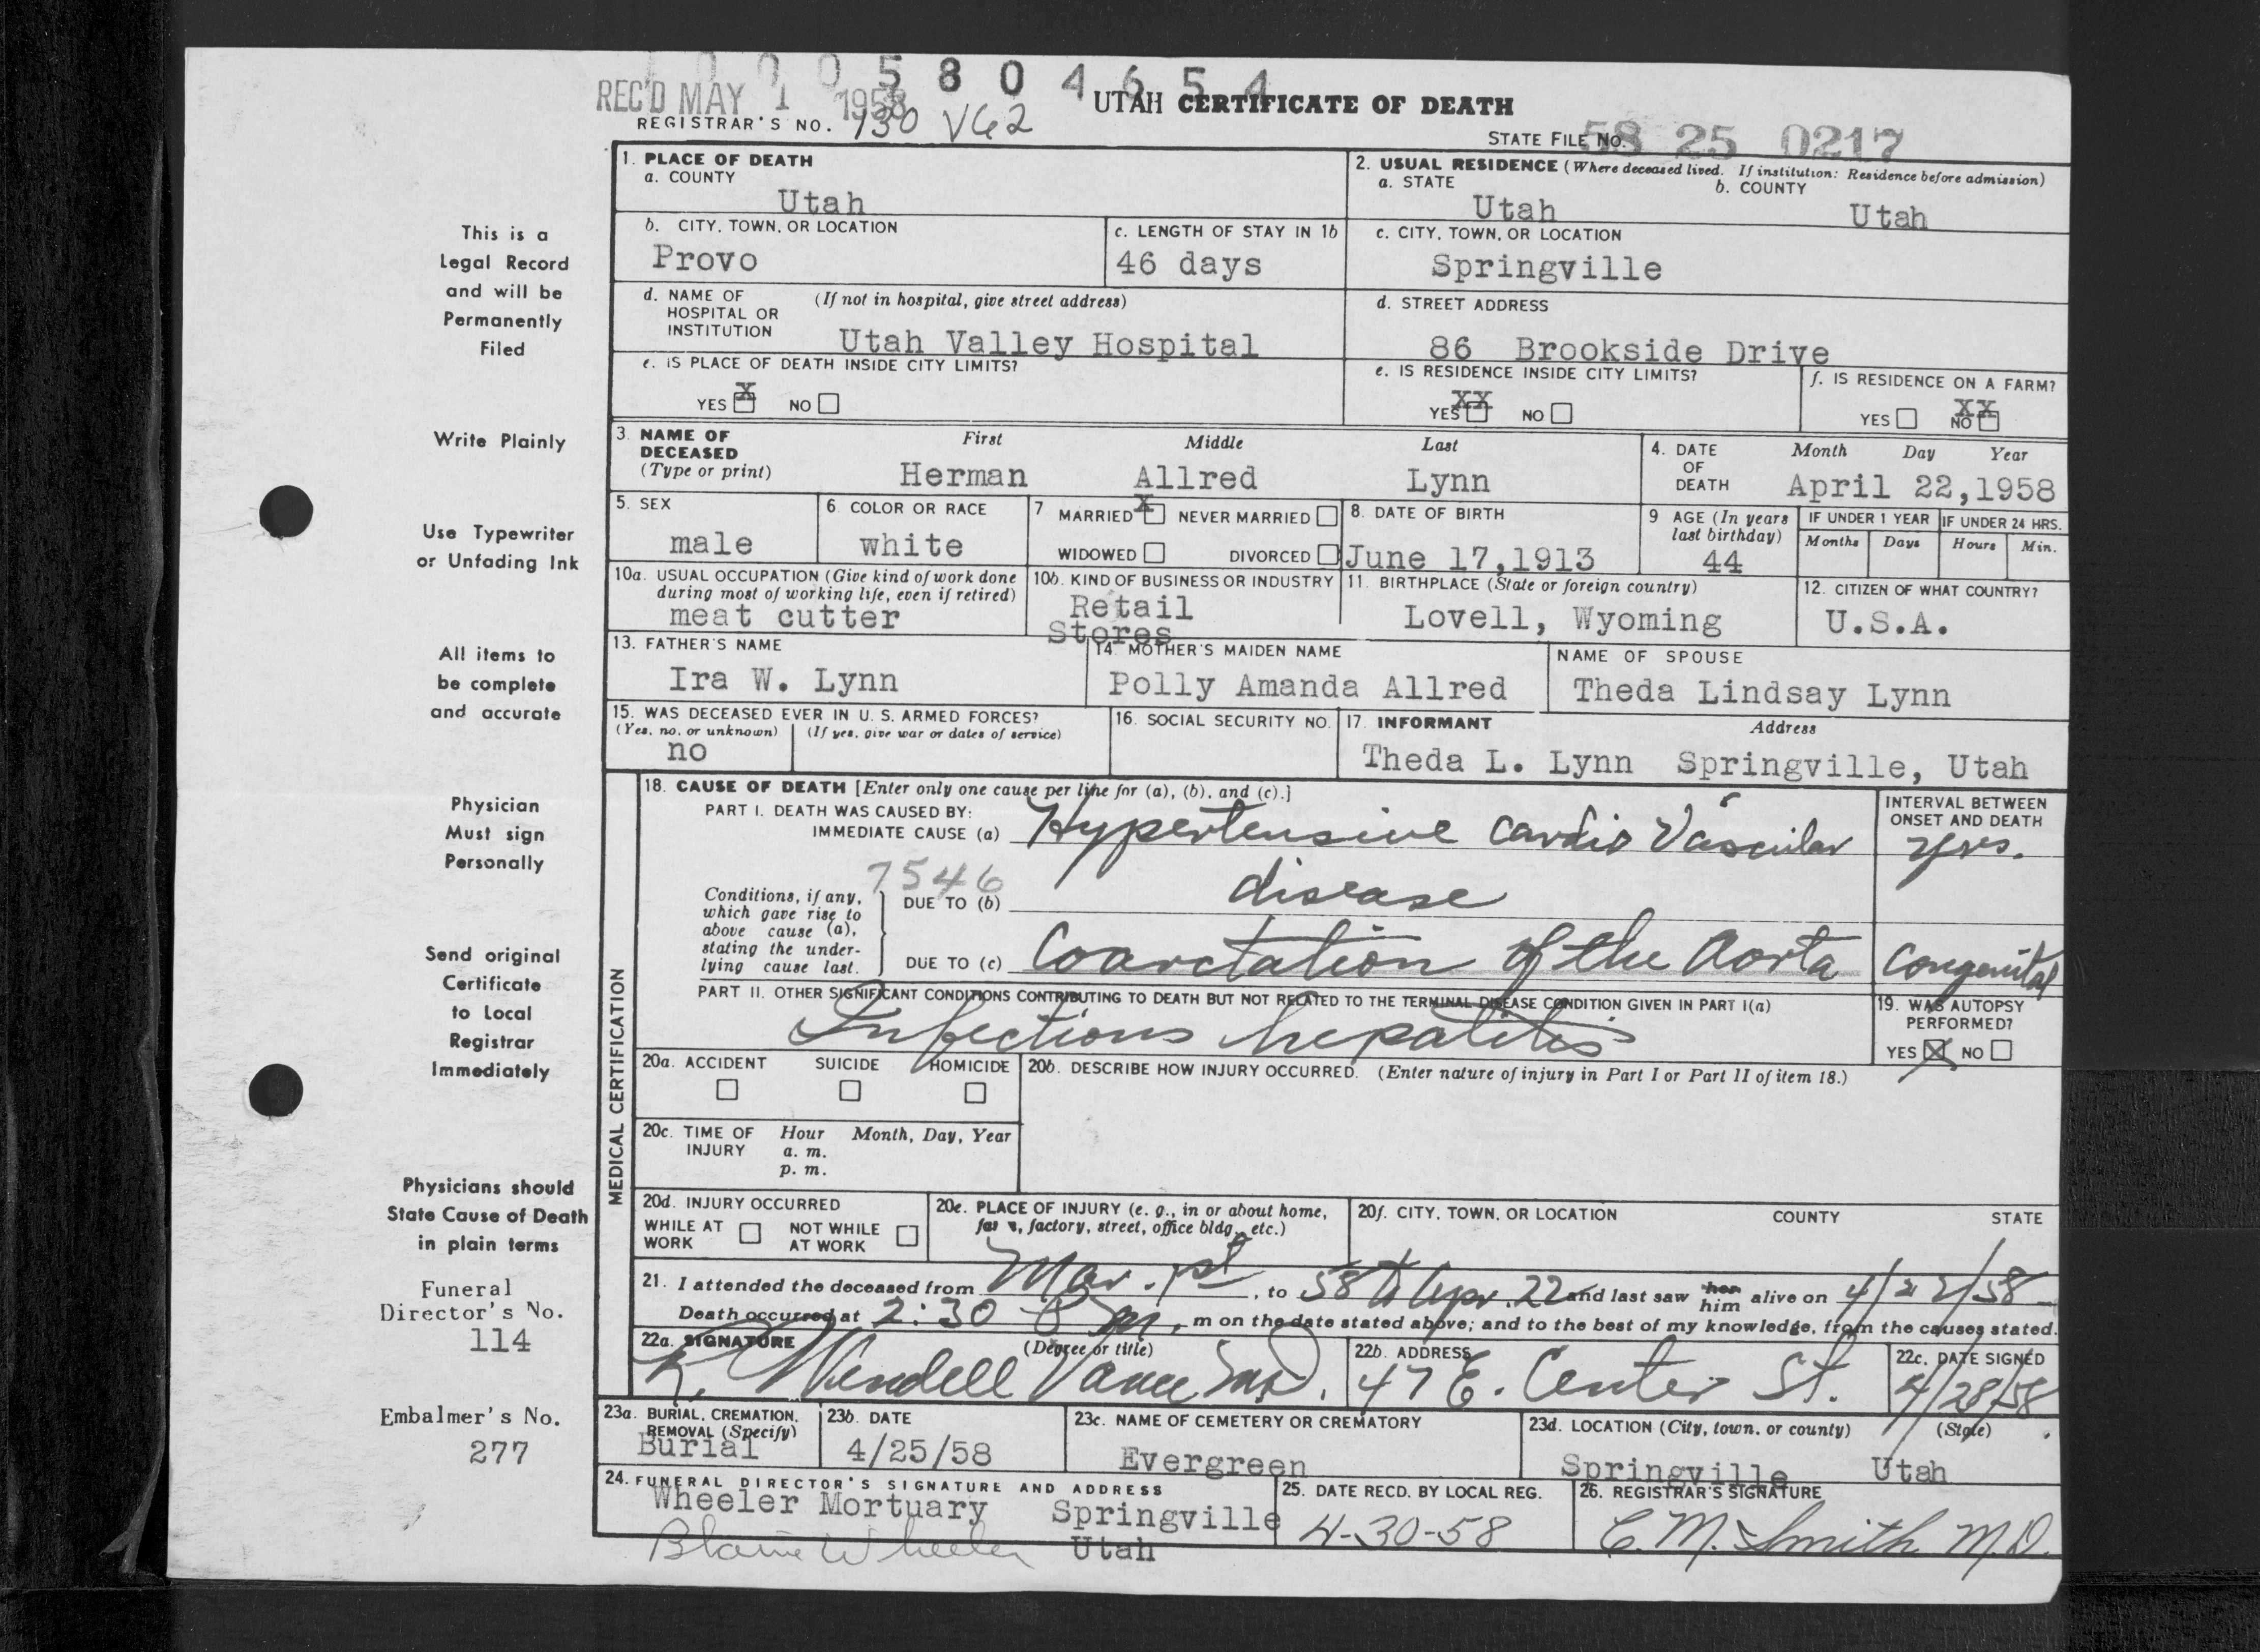 1 0 0 0 5 8 0 4 6 5 4
REC'D MAY 1 1958
UTAH CERTIFICATE OF DEATH
REGISTRAR'S NO. 130 V62
STATE FILE NO. 58 25 0217
1. PLACE OF DEATH
a. COUNTY
Utah
2. USUAL RESIDENCE (Where deceased lived. If institution: Residence before admission)
a. STATE b. COUNTY
Utah Utah
b. CITY, TOWN, OR LOCATION
Provo
c. LENGTH OF STAY IN 1b
46 days
c. CITY, TOWN, OR LOCATION
Springville
d. NAME OF HOSPITAL OR INSTITUTION (If not in hospital, give street address)
Utah Valley Hospital
d. STREET ADDRESS
86 Brookside Drive
e. IS PLACE OF DEATH INSIDE CITY LIMITS?
YES X NO
e. IS RESIDENCE INSIDE CITY LIMITS?
YES XX NO
f. IS RESIDENCE ON A FARM?
YES NO XX
3. NAME OF DECEASED (Type or print)
First Middle Last
Herman Allred Lynn
4. DATE OF DEATH Month Day Year
April 22,1958
5. SEX
male
6. COLOR OR RACE
white
7 MARRIED X NEVER MARRIED
WIDOWED DIVORCED
8. DATE OF BIRTH
June 17,1913
9 AGE (In years last birthday)
44
IF UNDER 1 YEAR
Months Days
IF UNDER 24 HRS.
Hours Min.
10a. USUAL OCCUPATION (Give kind of work done during most of working life, even if retired)
meat cutter
10b. KIND OF BUSINESS OR INDUSTRY
Retail
Stores
11. BIRTHPLACE (State or foreign country)
Lovell, Wyoming
12. CITIZEN OF WHAT COUNTRY?
U.S.A.
13. FATHER'S NAME
Ira W. Lynn
14. MOTHER'S MAIDEN NAME
Polly Amanda Allred
NAME OF SPOUSE
Theda Lindsay Lynn
15. WAS DECEASED EVER IN U. S. ARMED FORCES?
(Yes, no, or unknown) (If yes, give war or dates of service)
no
16. SOCIAL SECURITY NO.
17. INFORMANT Address
Theda L. Lynn Springville, Utah
MEDICAL CERTIFICATION
18. CAUSE OF DEATH [Enter only one cause per line for (a), (b), and (c).]
PART I. DEATH WAS CAUSED BY:
IMMEDIATE CAUSE (a) Hypertensive Cardio Vascular
INTERVAL BETWEEN ONSET AND DEATH
yrs.
7546
Conditions, if any, which gave rise to above cause (a), stating the underlying cause last.
DUE TO (b) disease
DUE TO (c) Coarctation of the Aorta Congenital
PART II. OTHER SIGNIFICANT CONDITIONS CONTRIBUTING TO DEATH BUT NOT RELATED TO THE TERMINAL DISEASE CONDITION GIVEN IN PART I(a)
Infectious hepatitis
19. WAS AUTOPSY PERFORMED?
YES X NO
20a. ACCIDENT SUICIDE HOMICIDE
20b. DESCRIBE HOW INJURY OCCURRED. (Enter nature of injury in Part I or Part II of item 18.)
20c. TIME OF INJURY Hour Month, Day, Year
a. m.
p. m.
20d. INJURY OCCURRED
WHILE AT WORK NOT WHILE AT WORK
20e. PLACE OF INJURY (e. g., in or about home, farm, factory, street, office bldg., etc.)
20f. CITY, TOWN, OR LOCATION COUNTY STATE
21. I attended the deceased from Mar. 1st, to 58 to Apr. 22 and last saw her him alive on 4/22/58
Death occurred at 2:30 P m, m on the date stated above; and to the best of my knowledge, from the causes stated.
22a. SIGNATURE (Degree or title)
K. Wendell Vance M.D.
22b. ADDRESS
47 E. Center St.
22c. DATE SIGNED
4/28/58
23a. BURIAL, CREMATION, REMOVAL (Specify)
Burial
23b. DATE
4/25/58
23c. NAME OF CEMETERY OR CREMATORY
Evergreen
23d. LOCATION (City, town, or county) (State)
Springville Utah
24. FUNERAL DIRECTOR'S SIGNATURE AND ADDRESS
Wheeler Mortuary Springville
Blaine Wheeler Utah
25. DATE RECD. BY LOCAL REG.
4-30-58
26. REGISTRAR'S SIGNATURE
C. M. Smith M.D.
This is a
Legal Record
and will be
Permanently
Filed
Write Plainly
Use Typewriter
or Unfading Ink
All items to
be complete
and accurate
Physician
Must sign
Personally
Send original
Certificate
to Local
Registrar
Immediately
Physicians should
State Cause of Death
in plain terms
Funeral
Director's No.
114
Embalmer's No.
277